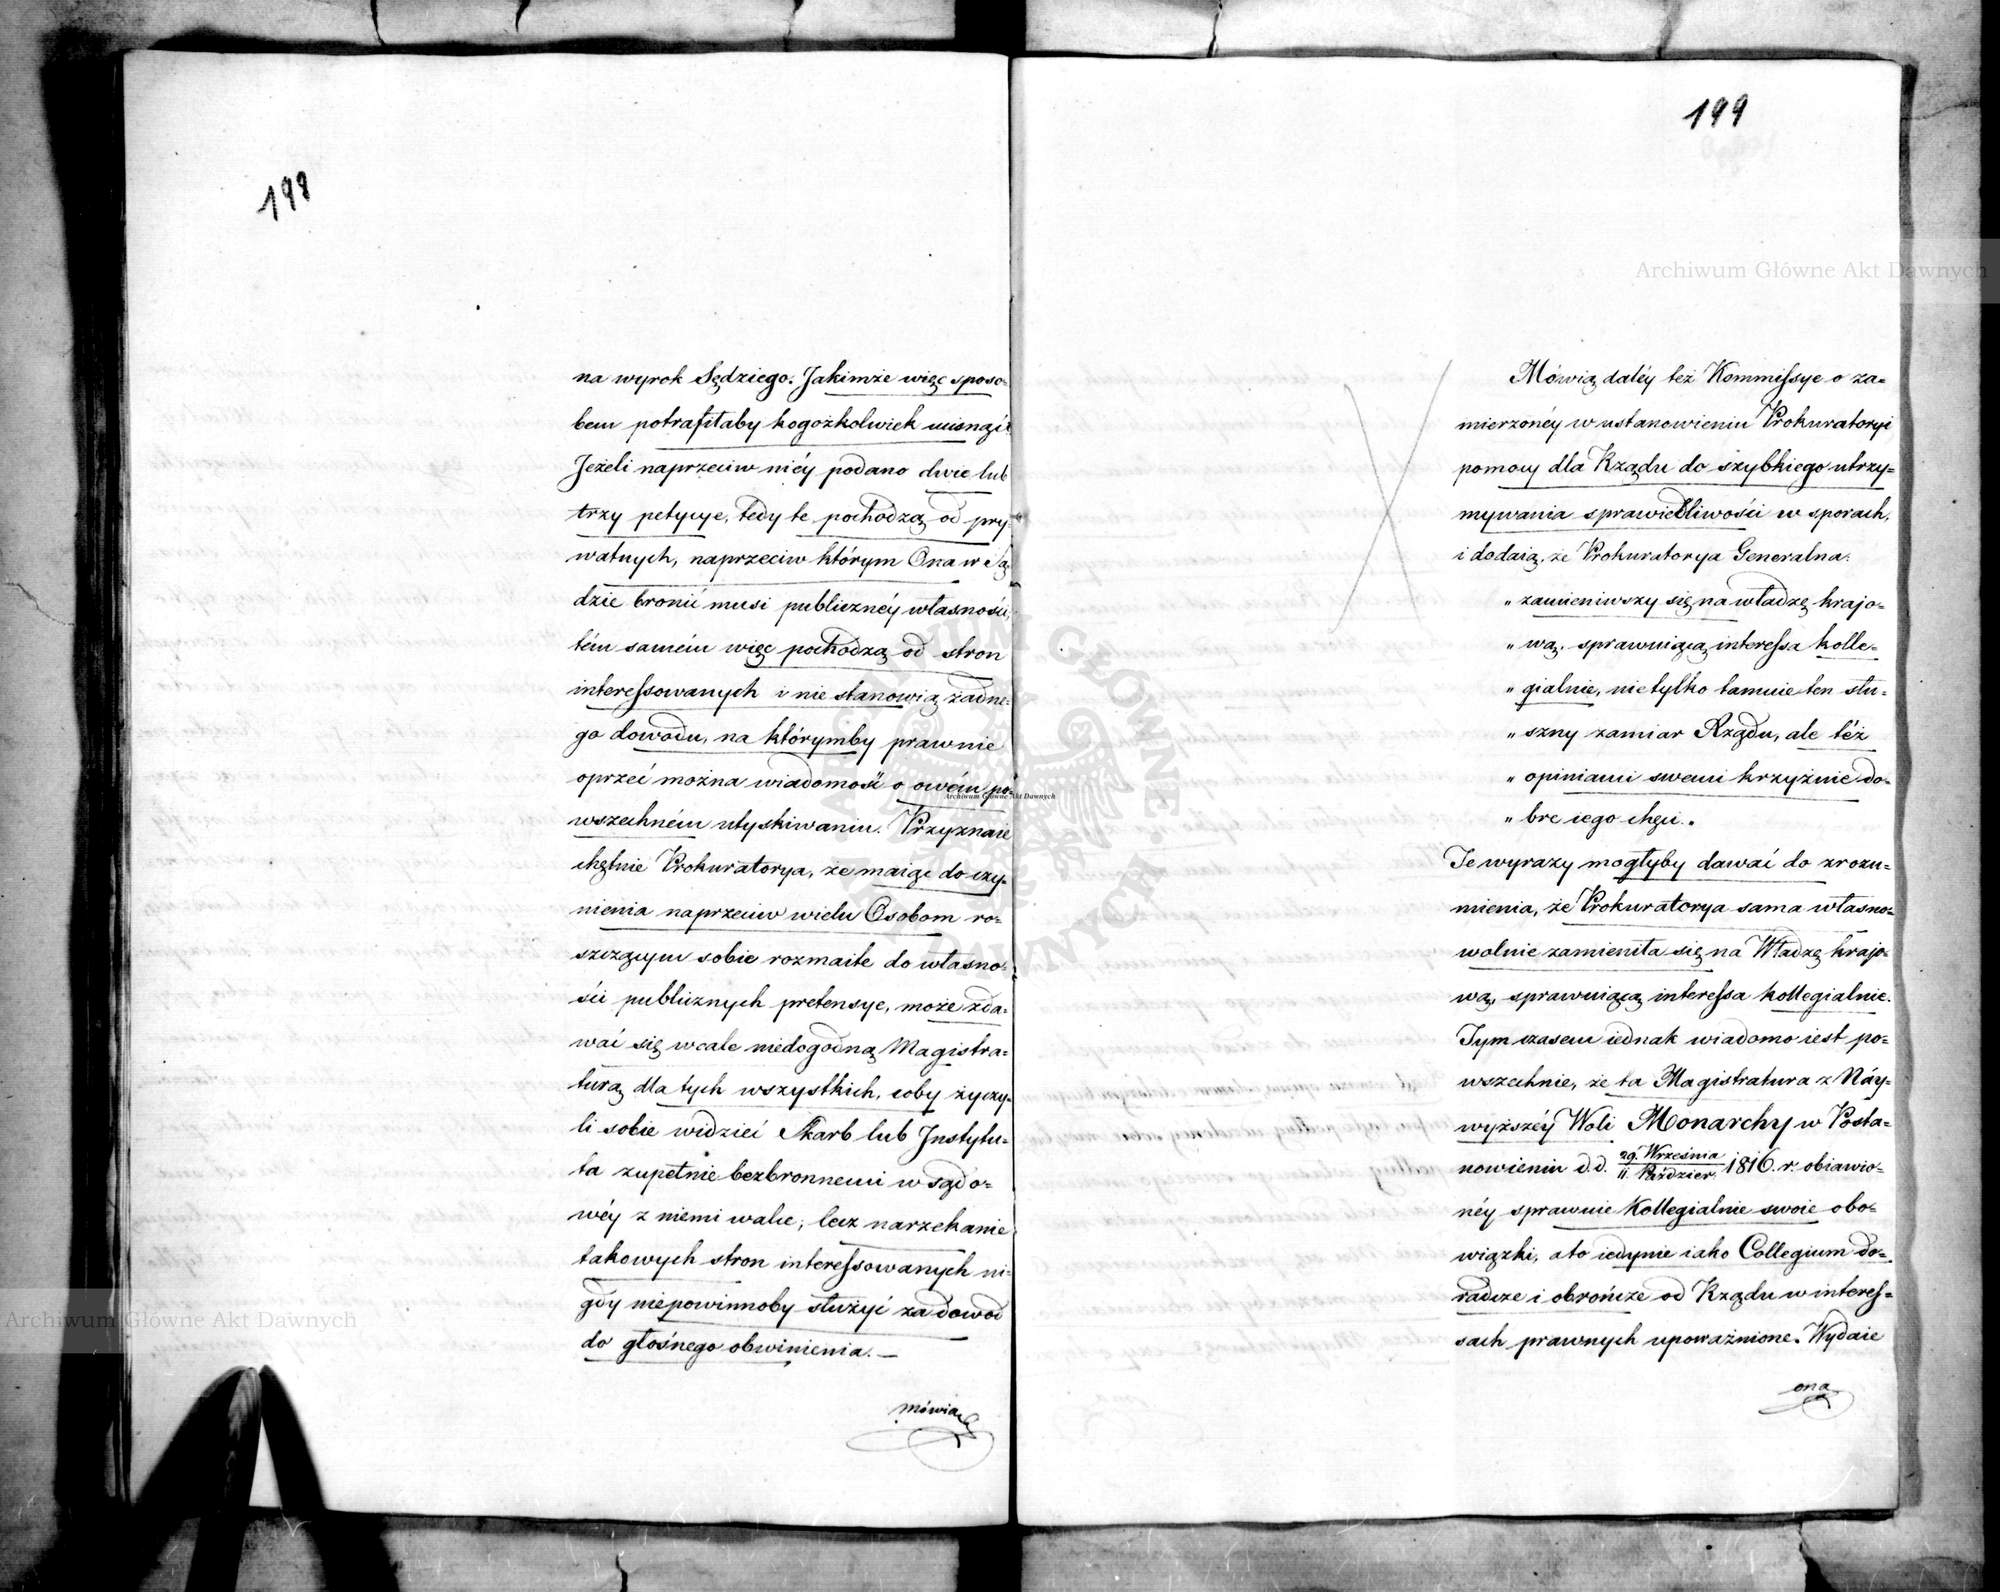 198
na wyrok Sędziego. Jakimże więc sposo-
bem potrafiłaby kogożkolwiek
Jeżeli naprzeciw niéy podano dwie lub
trzy petycye, tedy te pochodzą od pry-
watnych, naprzeciw którym Ona w Są-
dzie bronić musi publicznéy własności,
tém samém więc pochodzą od stron
interessowanych i nie stanowią żadne-
go dowodu, na którymby prawnie
oprzeć można wiadomość o owém po-
wszechném utyskiwaniu. Przyznaie
chętnie Prokuratorya, że maiąc do czy-
nienia naprzeciw wielu Osobom ro-
szczącym sobie rozmaite do własno-
ści publicznych pretensye, może zda-
wać się wcale niedogodną Magistra-
turą dla tych wszystkich, coby życzy-
li sobie widzieć Skarb lub Instytu-
ta zupełnie bezbronnemi w sądo-
wéy z niemi walce; lecz narzekanie
takowych stron interessowanych ni-
gdy niepowinnoby służyć za dowod
do głośnego obwinienia. —
mówią
199
Mówią daléy też Kommissye o za-
mierzonéy w ustanowieniu Prokuratoryi
pomocy dla Rządu do szybkiego utrzy-
mywania sprawiedliwości w sporach,
i dodaią, że Prokuratorya Generalna:
„ zamieniwszy się na władzę krajo-
„ wą, sprawuiącą interessa kolle-
„ gialnie, nietylko tamuie ten słu-
„ szny zamiar Rządu, ale też
„ opiniami swemi krzyżuie do-
„ bre iego chęci."
Te wyrazy mogłyby dawać do zrozu-
mienia, że Prokuratorya sama własno-
wolnie zamieniła się na Władzę krajo-
wą, sprawuiącą interessa kollegialnie.
Tym czasem iednak wiadomo iest po-
wszechnie, że ta Magistratura z Náy-
wyższéy Woli Monarchy w Posta-
nowieniu d.d. 29. Września / 11. Paździer. 1816. r. obiawio-
néy sprawuie Kollegialnie swoie obo-
wiązki, a to iedynie iako Collegium do-
radcze i obrończe od Rządu w interes-
sach prawnych upoważnione. Wydaie
ona
Archiwum Główne Akt Dawnych
Archiwum Główne Akt Dawnych
Archiwum Główne Akt Dawnych